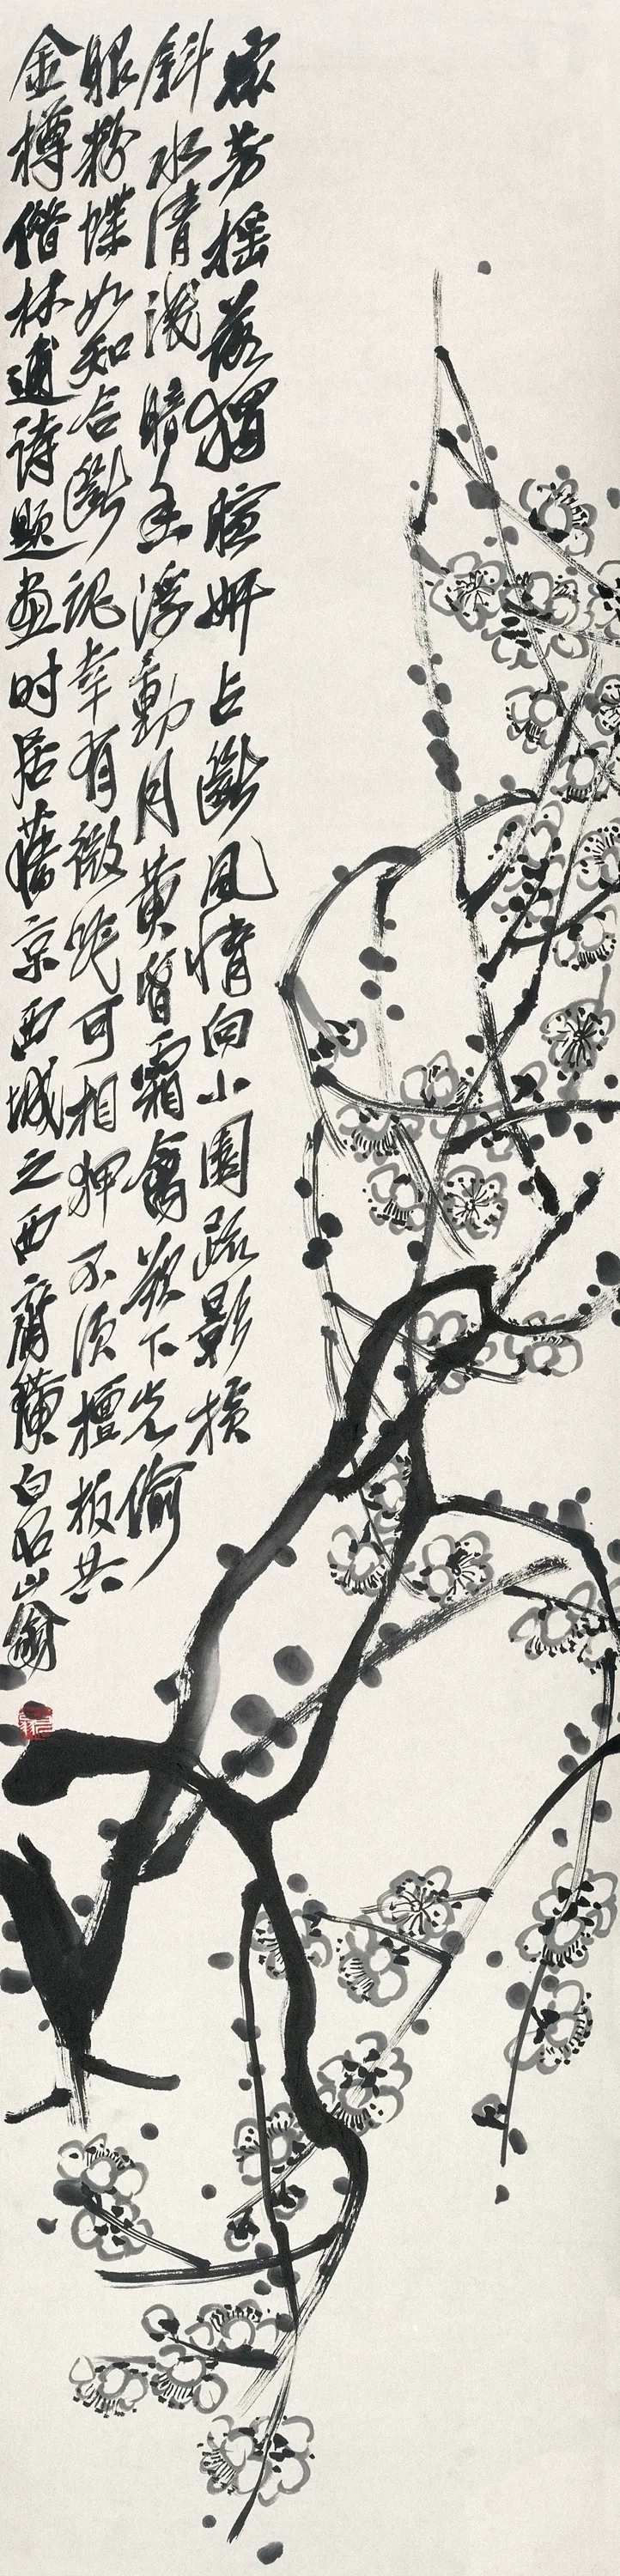 衆芳搖落獨暄妍占斷風情向小園疏影横
斜水清淺暗香浮動月黄昏霜禽欲下先偷
眼粉蝶如知合斷魂幸有微吟可相狎不須檀板共
金樽借林逋詩題畫时居舊京西城之西齊璜白石山翁